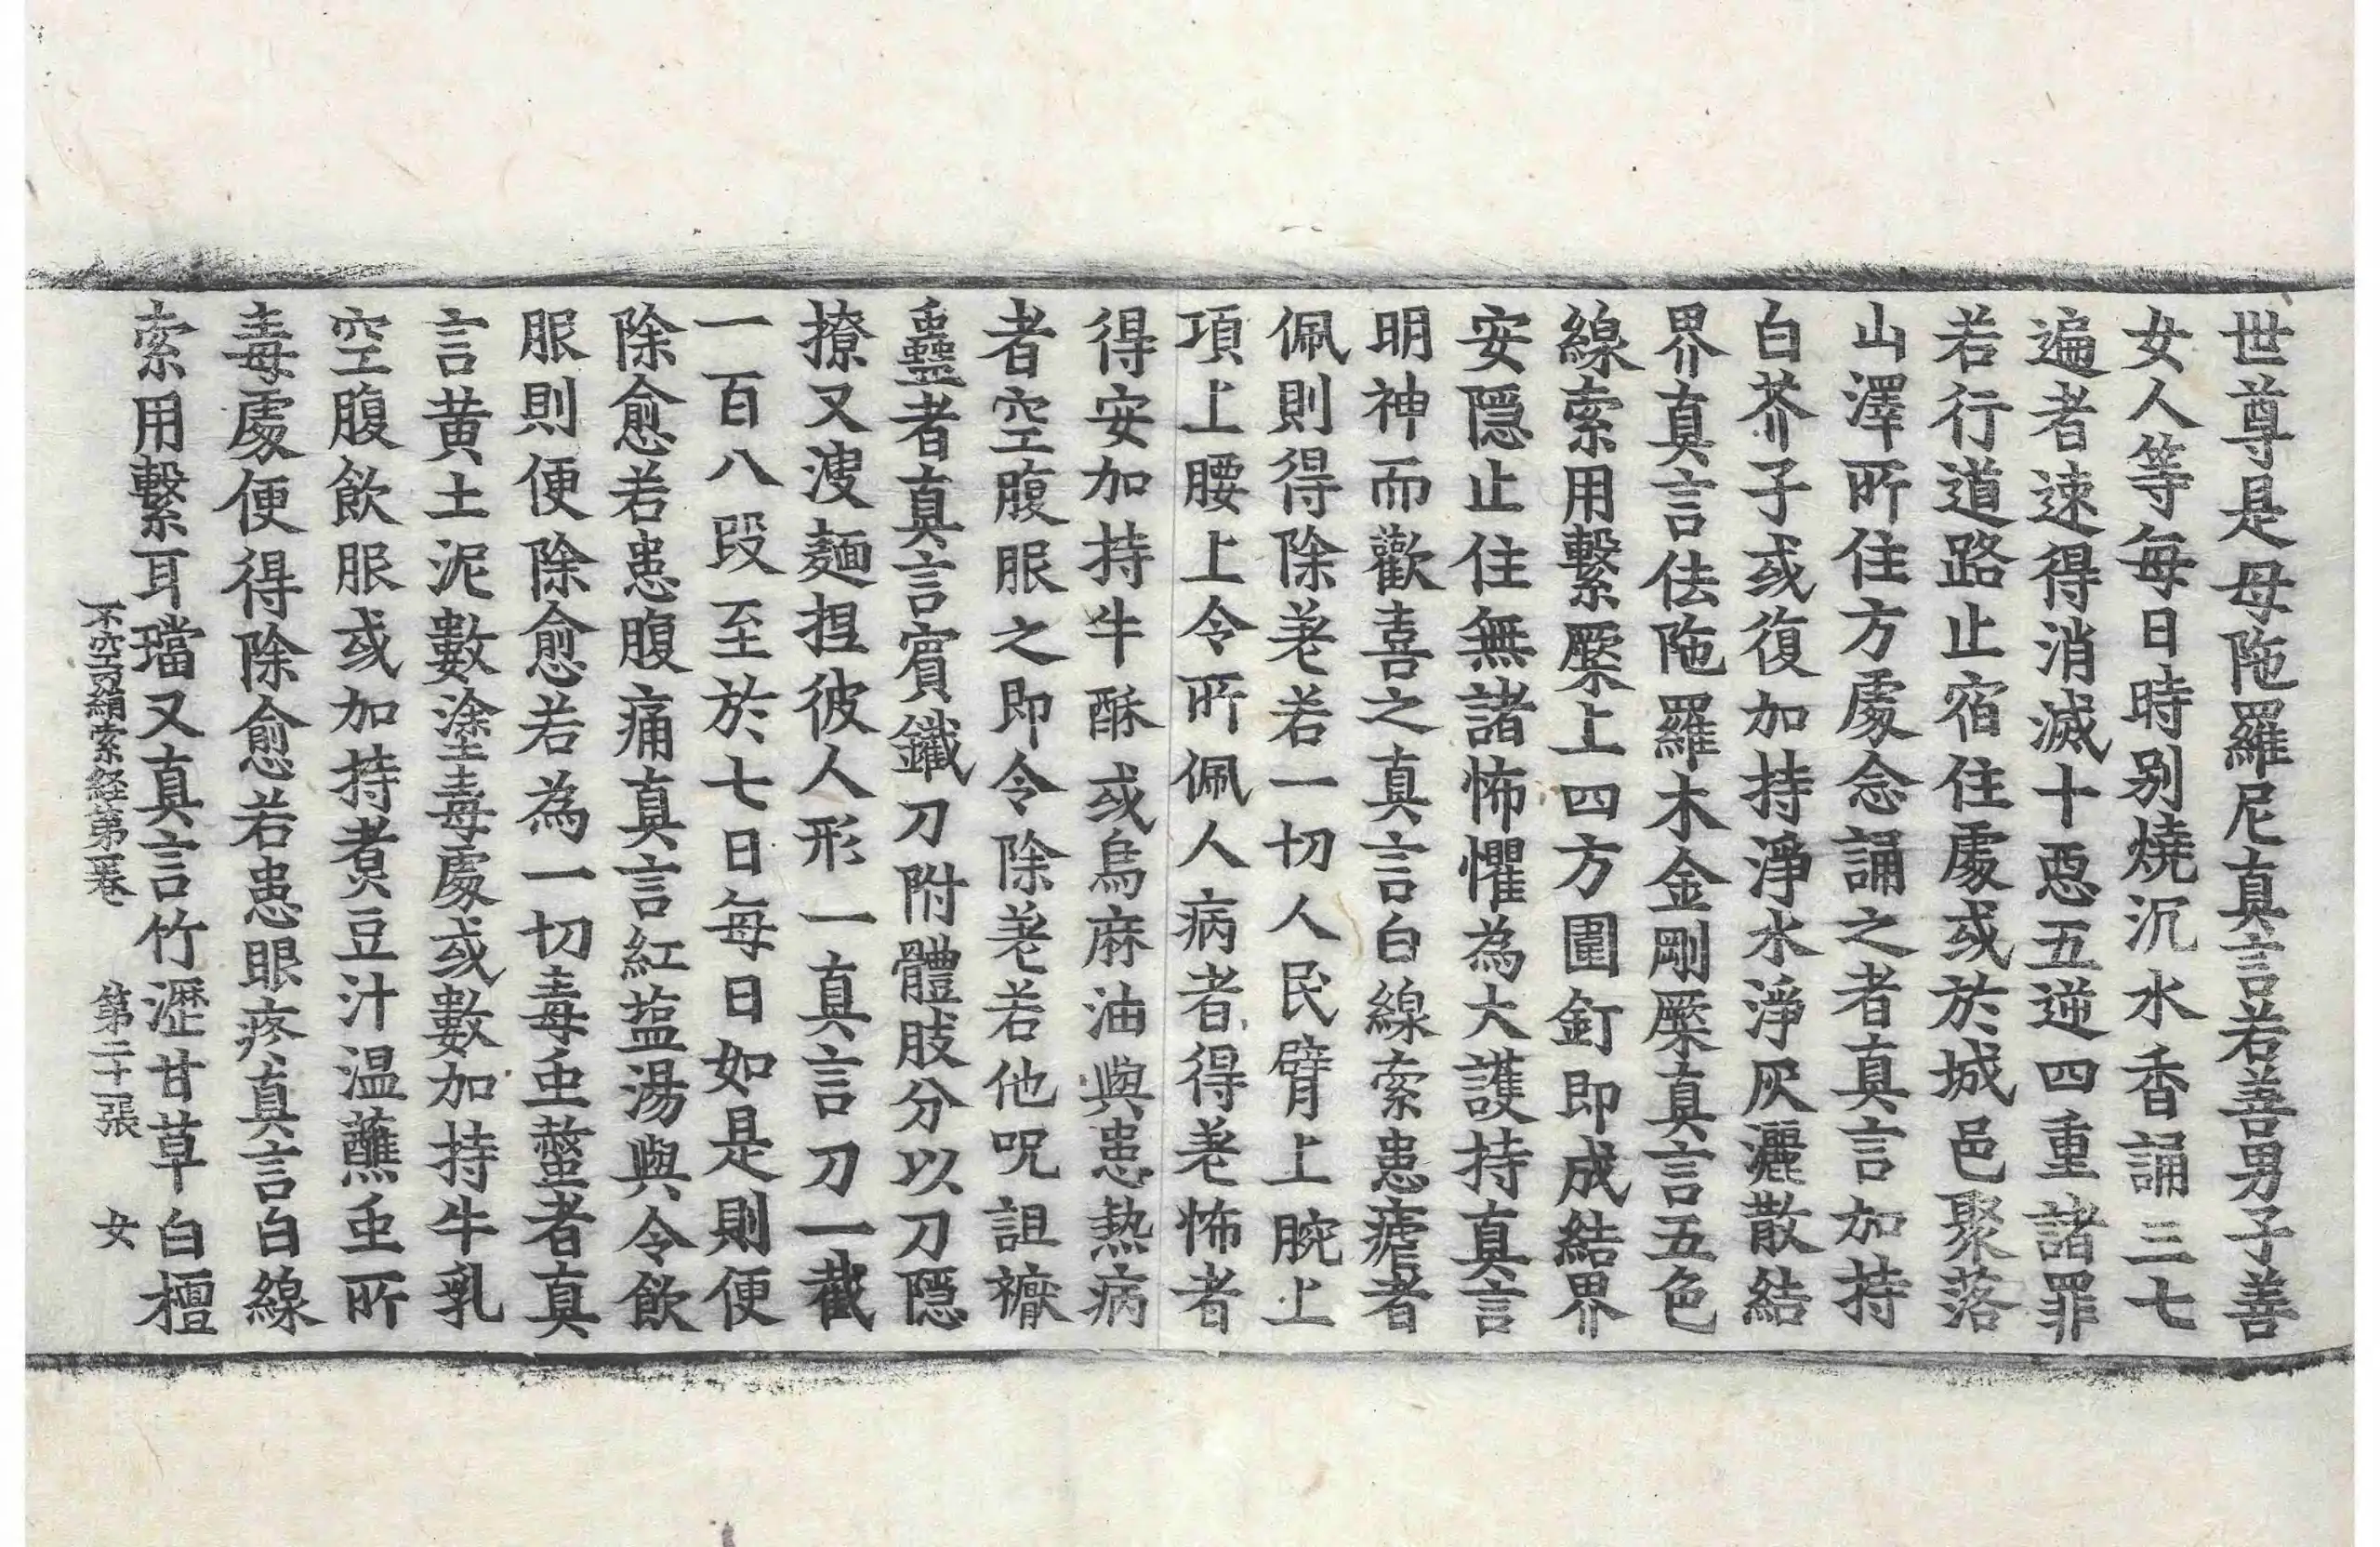 世尊是母陁羅尼真言若善男子善
女人等每日時別燒沉水香誦三七
遍者速得消滅十惡五逆四重諸罪
若行道路止宿住處或於城邑聚落
山澤所住方處念誦之者真言加持
白芥子或復加持淨水淨灰灑散結
界真言佉陁羅木金剛橛真言五色
線索用繫橛上四方圍釘即成結界
安隱止住無諸怖懼為大護持真言
明神而歡喜之真言白線索患瘧者
佩則得除差若一切人民臂上腕上
項上腰上令所佩人病者得差怖者
得安加持牛酥或烏麻油與患熱病
者空腹服之即令除差若他呪詛禳
蠱者真言賓鐵刀附體肢分以刀隱
撩又溲麵捏彼人形一真言刀一截
一百八段至於七日每日如是則便
除愈若患腹痛真言紅塩湯與令飲
服則便除愈若為一切毒虫螫者真
言黃土泥數塗毒處或數加持牛乳
空腹飲服或加持煑豆汁溫蘸虫所
毒處便得除愈若患眼疼真言白線
索用繫耳璫又真言竹瀝甘草白檀
不空羂索経第一卷 第二十張 女